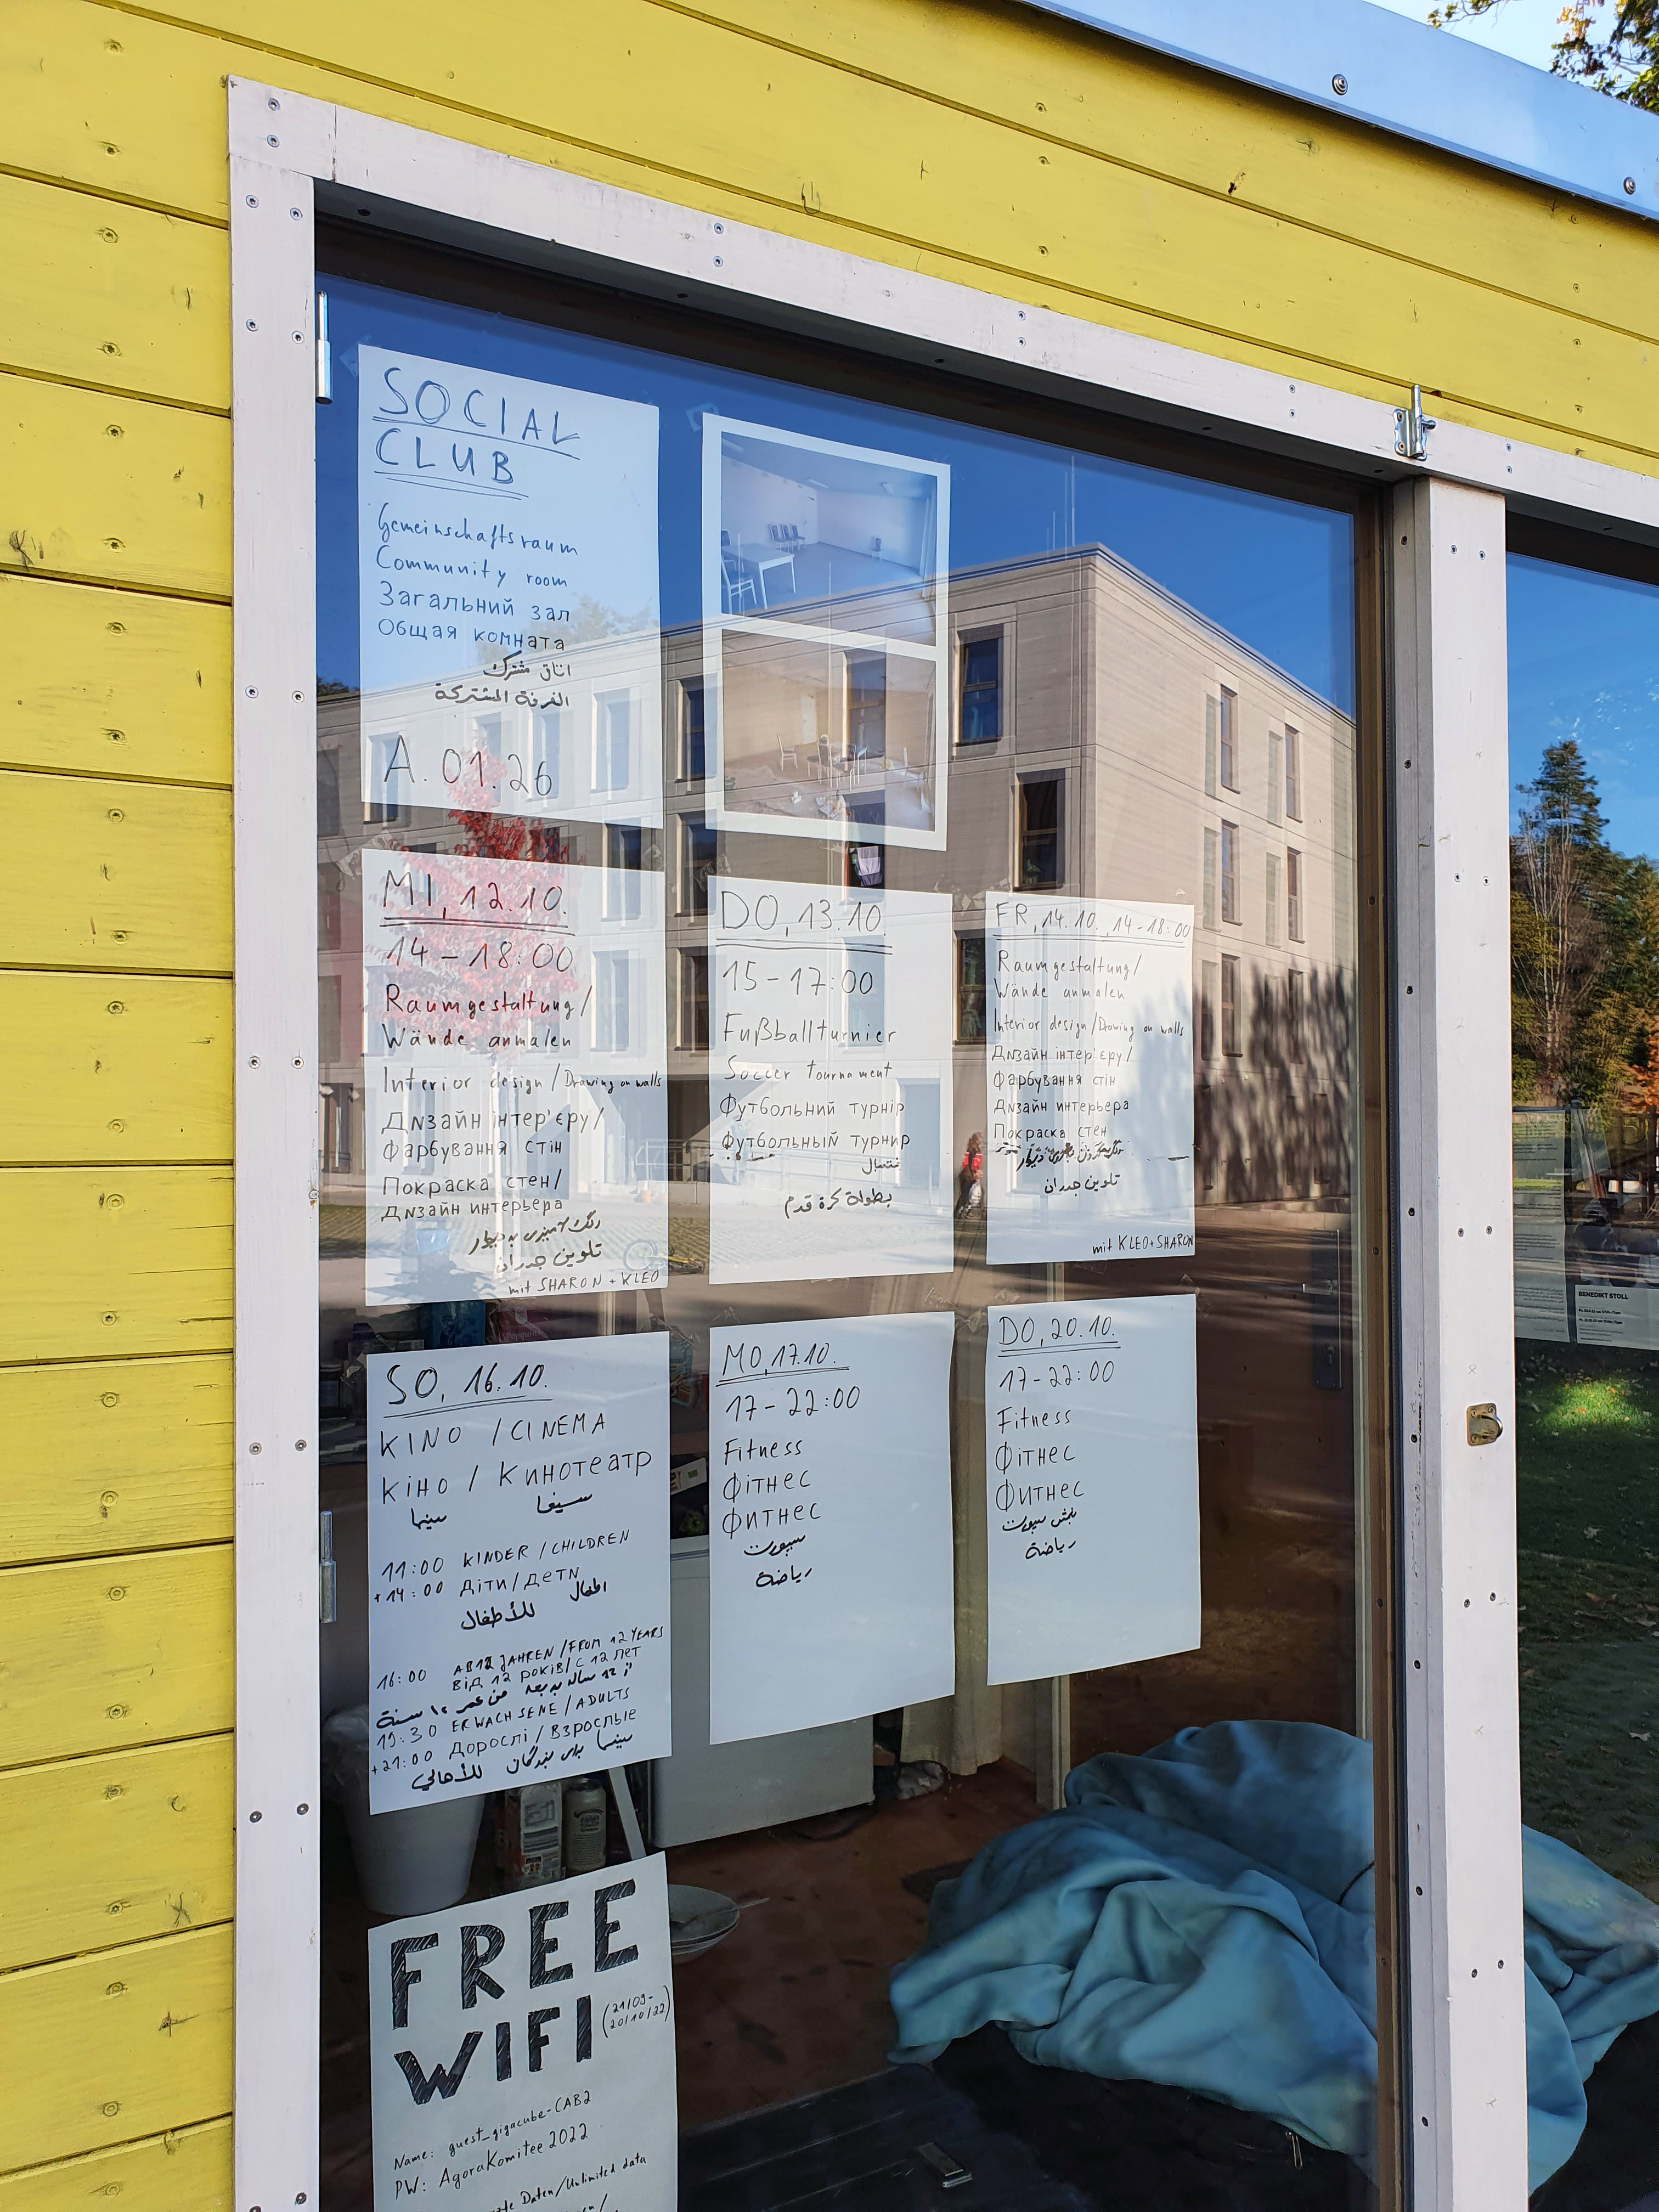 SOCIAL
CLUB
Gemeinschaftsraum
Community room
Загальний зал
Общая комната
اتاق مشترك
الغرفة المشتركة
A.01.26
MI, 12.10.
14-18:00
Raumgestaltung/
Wände anmalen
Interior design/Drawing on walls
Дизайн інтер'єру/
Фарбування стін
Покраска стен/
Дизайн интерьера
رنگ آمیزی به دیوار
تلوين جدران
mit SHARON + KLEO
DO, 13.10.
15-17:00
Fußballturnier
Soccer tournament
Футбольний турнір
Футбольный турнир
بطولة كرة قدم
FR, 14.10., 14-18:00
Raumgestaltung/
Wände anmalen
Interior design/Drawing on walls
Дизайн інтер'єру/
Фарбування стін
Дизайн интерьера
Покраска стен
تلوين جدران
mit KLEO+SHARON
SO, 16.10.
KINO / CINEMA
Кіно / Кинотеатр
سينما سينما
11:00 KINDER / CHILDREN
+14:00 Діти/Дети
اطفال للأطفال
16:00 AB 12 JAHREN / FROM 12 YEARS
Від 12 років/с 12 лет
من عمر ١٢ سنة
19:30 ERWACHSENE / ADULTS
+21:00 Дорослі / Взрослые
للأهالي
MO, 17.10.
17-22:00
Fitness
Фітнес
Фитнес
سپورت
رياضة
DO, 20.10.
17-22:00
Fitness
Фітнес
Фитнес
سپورت
رياضة
FREE
WIFI (21/09-
20/10/22)
Name: guest_gigacube-CAB2
PW: AgoraKomitee2022
Daten/Unlimited data
BENEDIKT STOLL